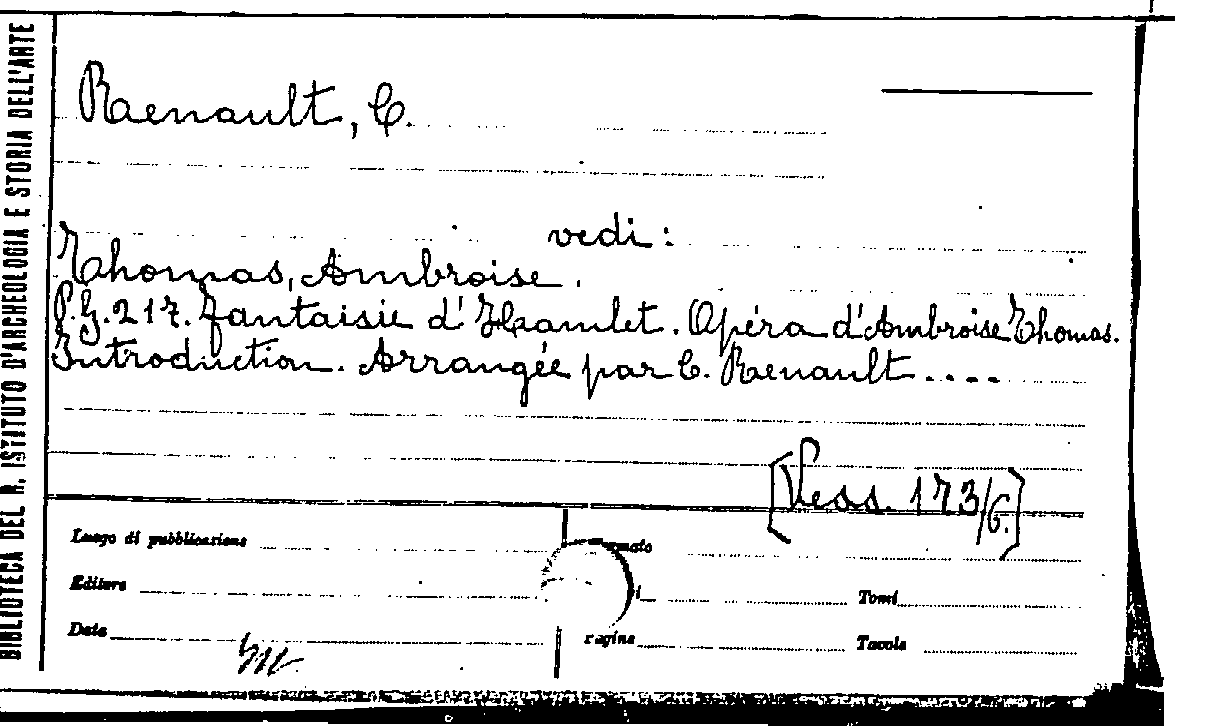 BIBLIOTECA DEL R. ISTITUTO D'ARCHEOLOGIA E STORIA DELL'ARTE
Raenault, C.
vedi:
Thomas, Ambroise.
P.G.217. Fantaisie d'Hamlet. Opéra d'Ambroise Thomas.
Introduction. Arrangée par C. Raenault....
[Vess. 173/6.]
Luogo di pubblicazione
Editore
Tomi
Data
Pagine
Tavole